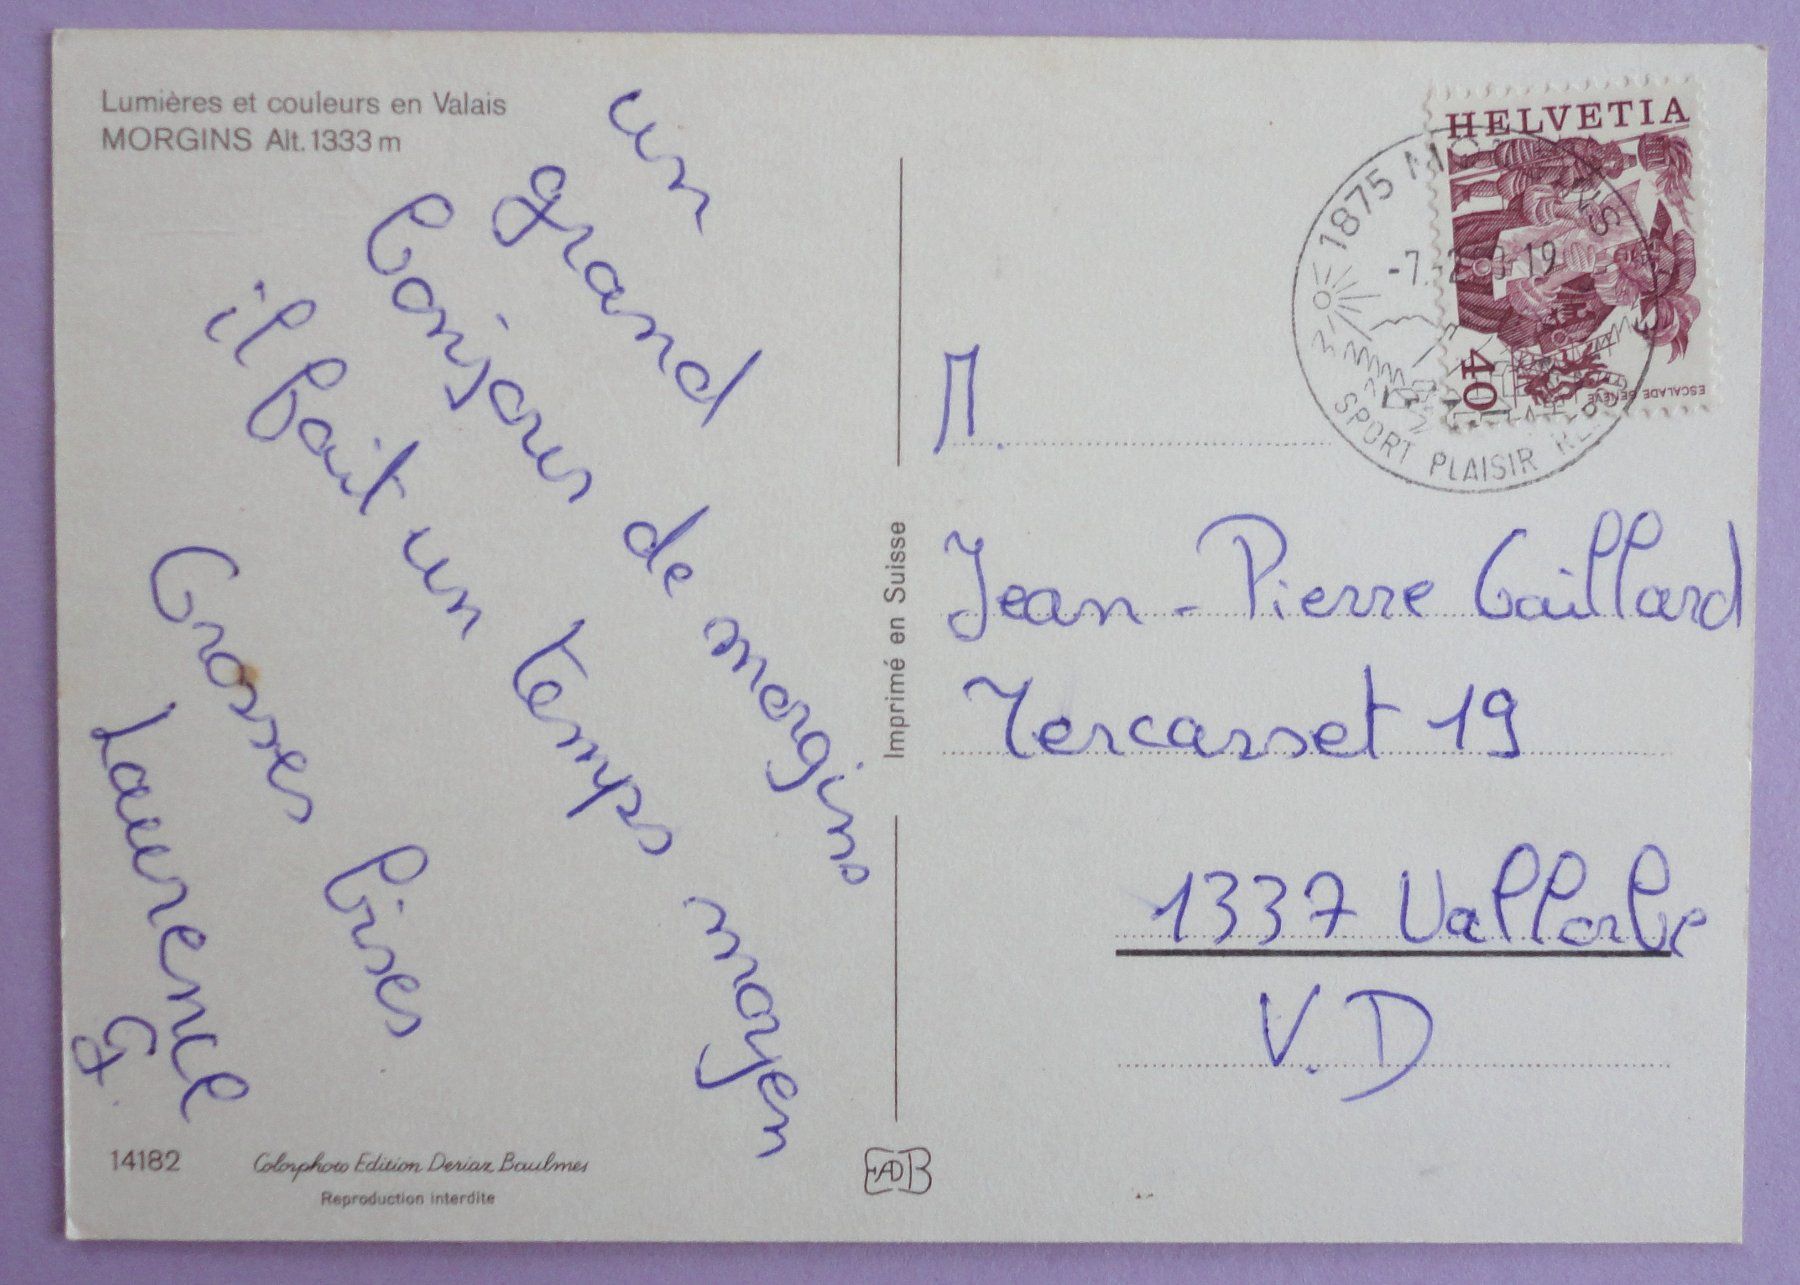 Lumières et couleurs en Valais
MORGINS Alt. 1333 m
un
grand
bonjour de morgins
il fait un temps moyen
Grosses bises
Laurence
G.
14182
Colorphoto Edition Deriaz Baulmes
Reproduction interdite
Imprimé en Suisse
EADB
HELVETIA
40
ESCALADE GENÈVE
1875 MORGINS
-7.-2 19
SPORT PLAISIR
M.
Jean-Pierre Gaillard
Jercasset 19
1337 Vallorbe
V.D